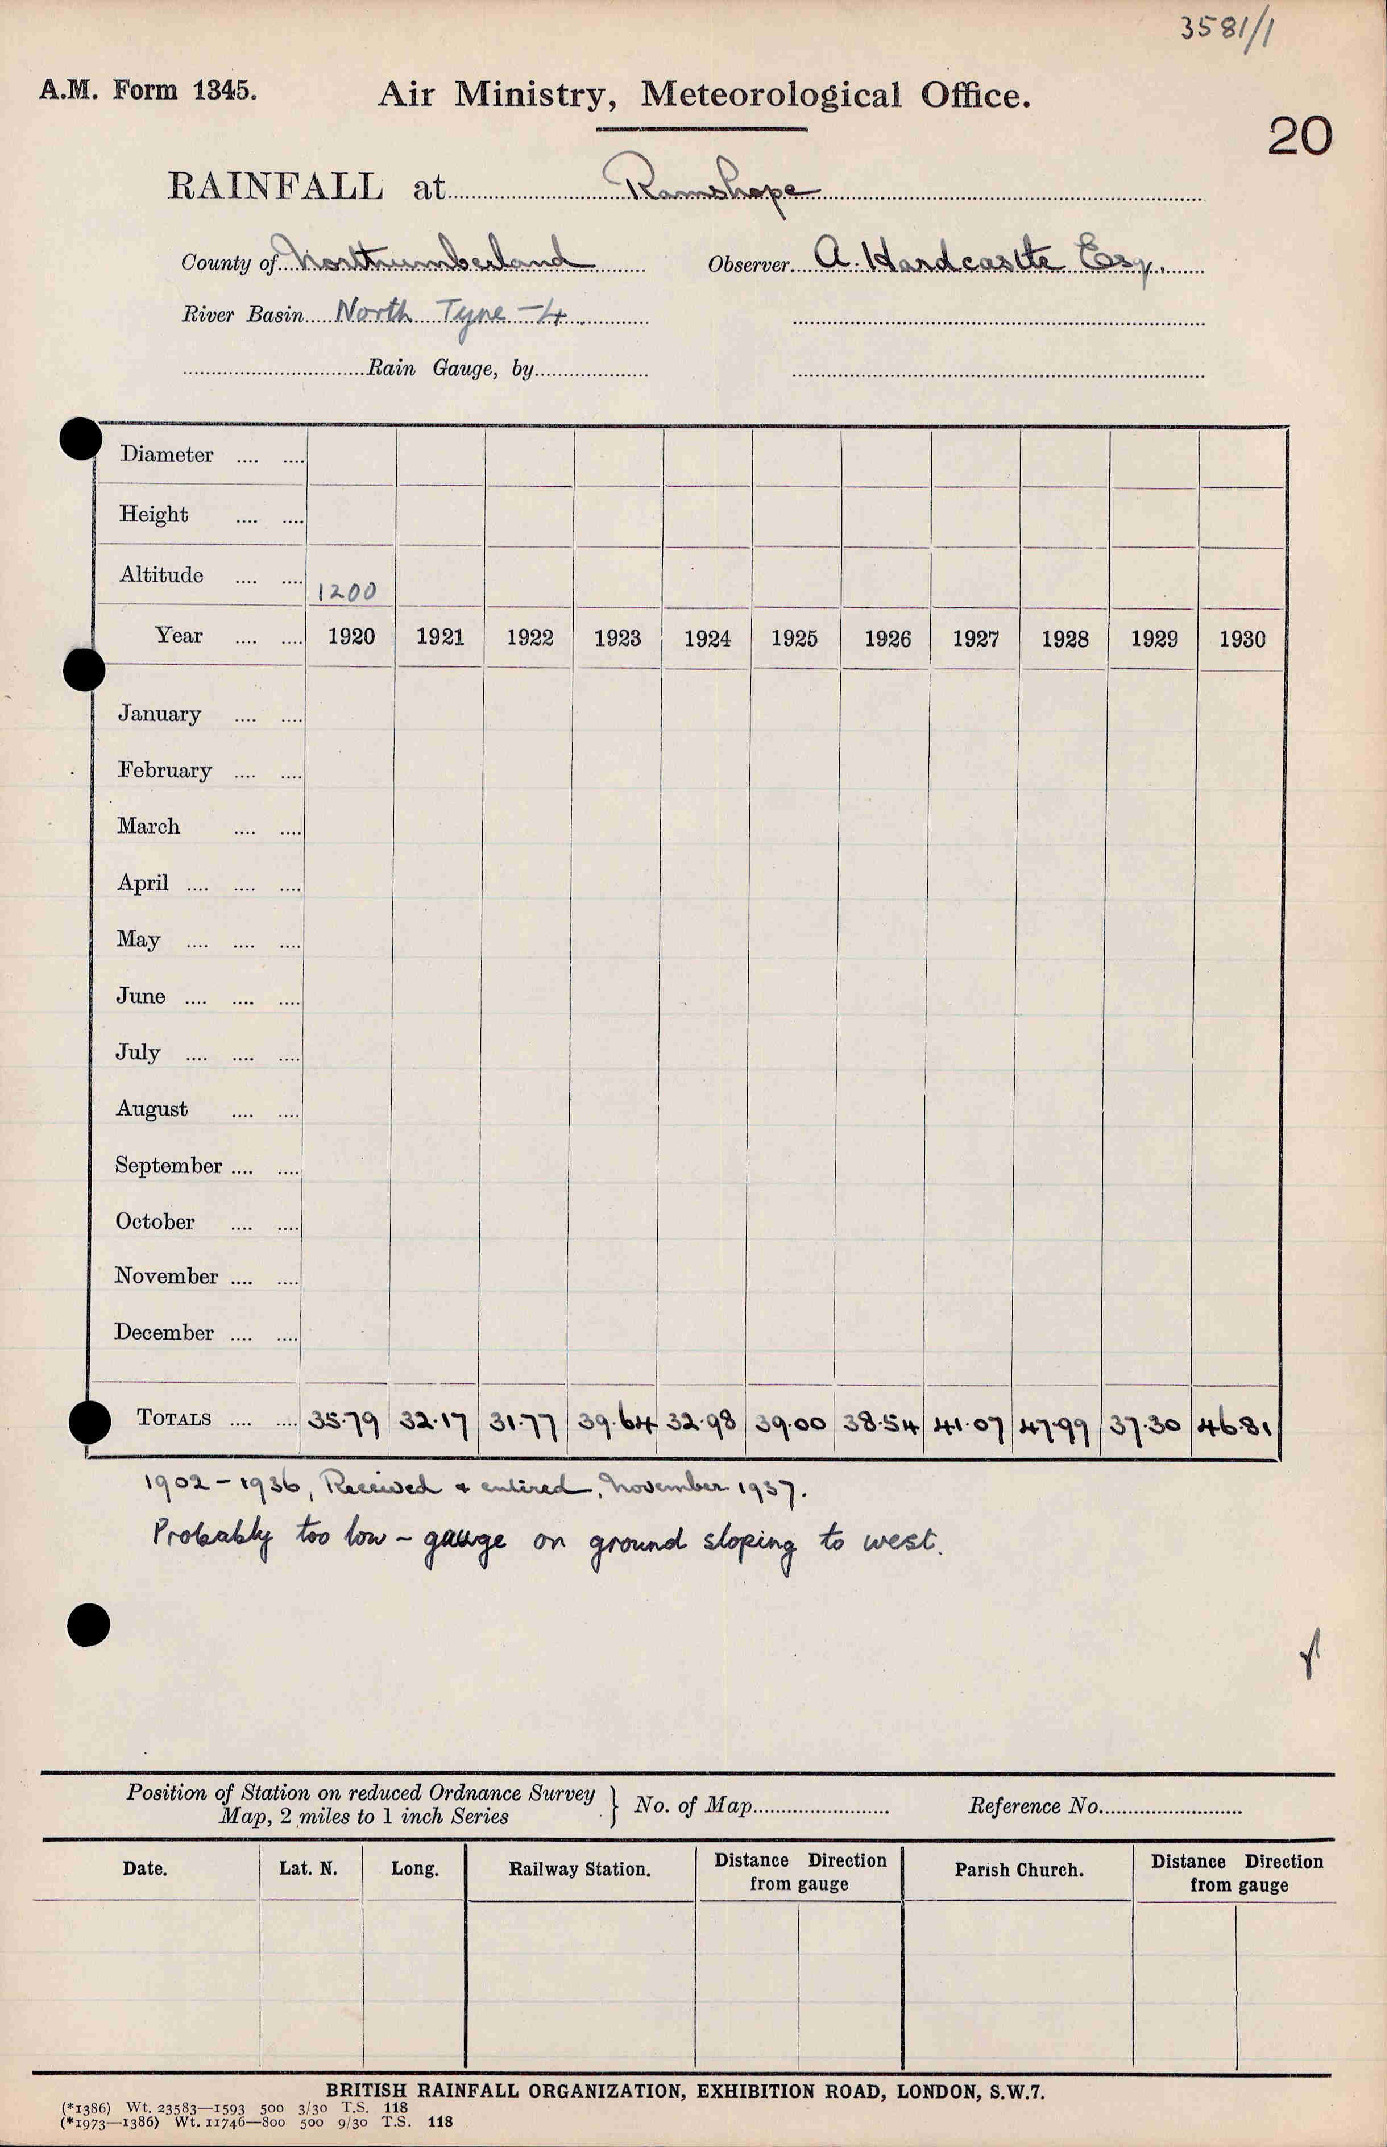 3581/1
A.M. Form 1345.
Air Ministry, Meteorological Office.
20
RAINFALL at Ramshope
County of Northumberland Observer A. Hardcastle Esq.
River Basin North Tyne - 4.
Rain Gauge, by
Diameter
Height
Altitude 1200
Year 1920 1921 1922 1923 1924 1925 1926 1927 1928 1929 1930
January
February
March
April
May
June
July
August
September
October
November
December
TOTALS 35.79 32.17 31.77 39.64 32.98 39.00 38.54 41.07 47.99 37.30 46.81
1902 - 1936, Received & entered, November 1937.
Probably too low - gauge on ground sloping to west.
Position of Station on reduced Ordnance Survey
Map, 2 miles to 1 inch Series } No. of Map Reference No.
Date. Lat. N. Long. Railway Station. Distance Direction from gauge Parish Church. Distance Direction from gauge
BRITISH RAINFALL ORGANIZATION, EXHIBITION ROAD, LONDON, S.W.7.
(*1386) Wt. 23583—1593 500 3/30 T.S. 118
(*1973—1386) Wt. 11746—800 500 9/30 T.S. 118